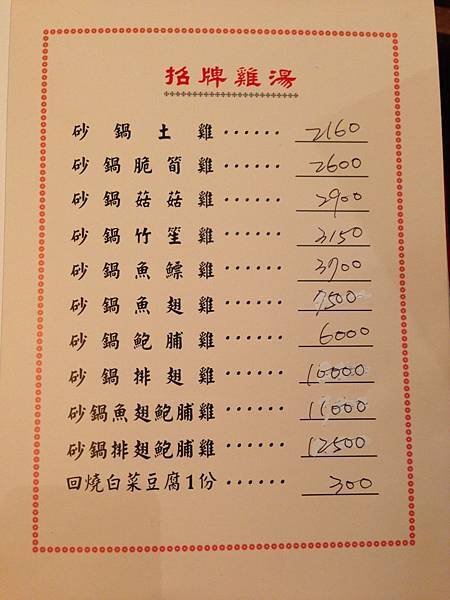 招牌雞湯
砂鍋土雞 ······ 2160
砂鍋脆筍雞 ······ 2600
砂鍋菇菇雞 ······ 2900
砂鍋竹笙雞 ······ 3150
砂鍋魚鰾雞 ······ 3700
砂鍋魚翅雞 ······ 7500
砂鍋鮑脯雞 ······ 6000
砂鍋排翅雞 ······ 10000
砂鍋魚翅鮑脯雞 ······ 11000
砂鍋排翅鮑脯雞 ······ 12500
回燒白菜豆腐1份 ······ 300